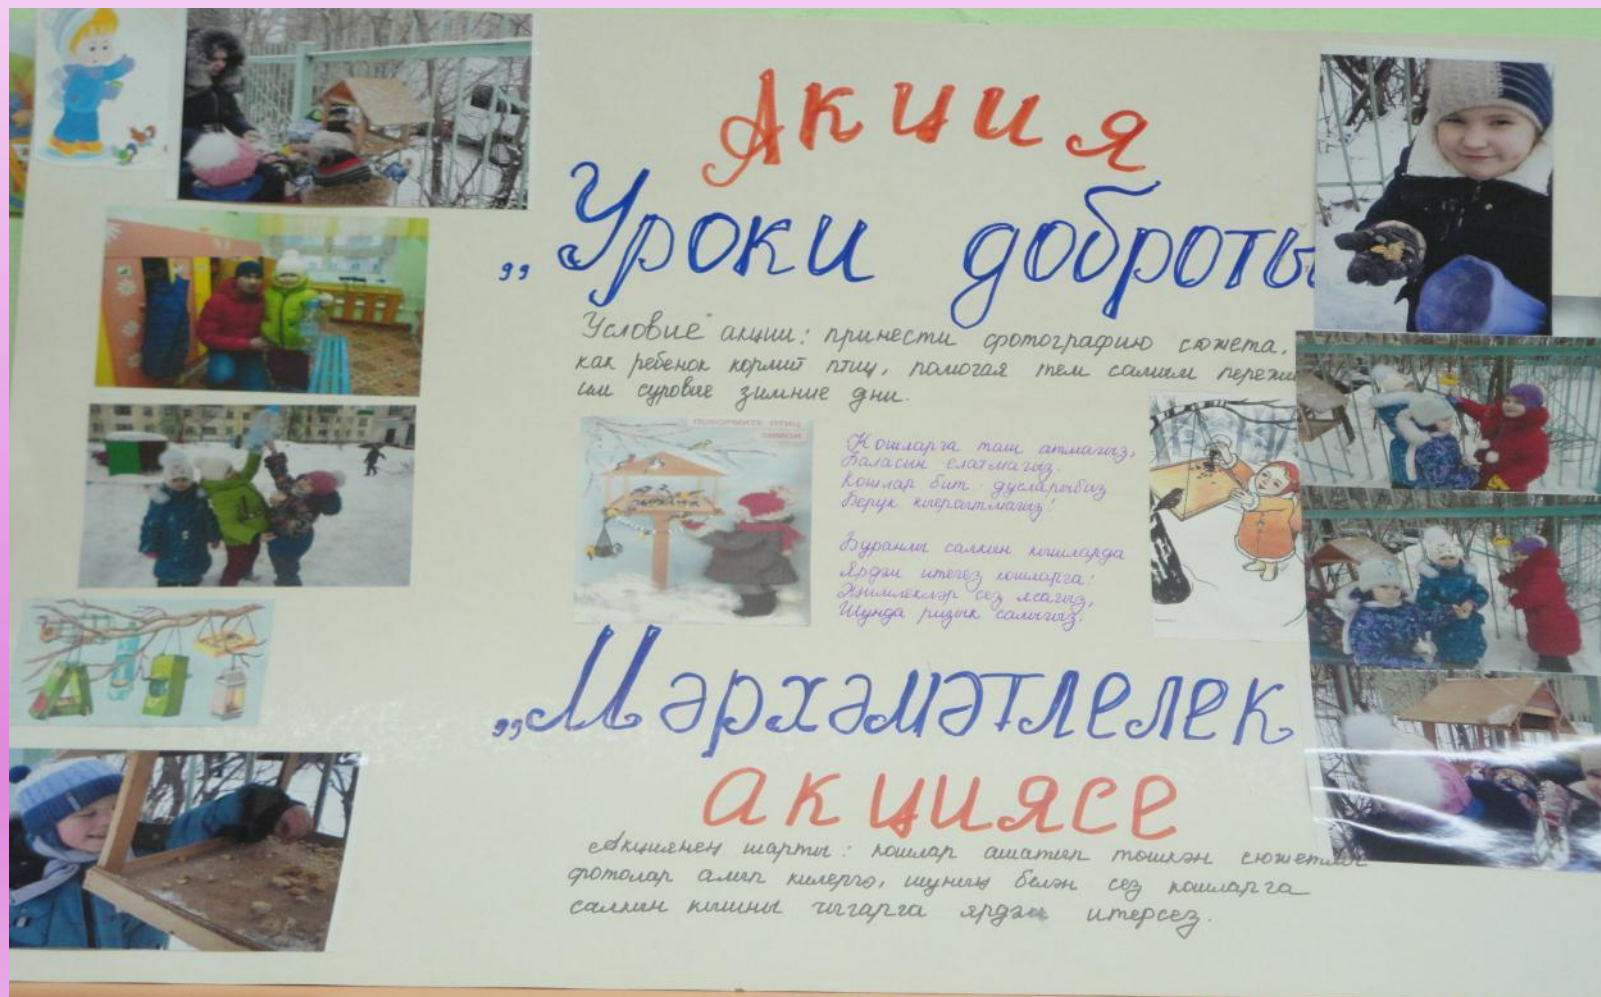 Акция
„Уроки доброты
Условие акции: принести фотографию сюжета,
как ребенок кормит птиц, помогая тем самым
им суровые зимние дни.
Кошларга таш атмагыз,
Баласын елатмагыз.
Кошлар бит дусларыбыз
Берүк кыерсытмагыз!
Буранлы салкын кышларда
Ярдәм итегез кошларга:
Җимлекләр сез ясагыз,
Шунда ризык салыгыз.
„Мәрхәмәтлелек
акциясе
Акциянең шарты: кошлар ашатып төшкән сюжетлы
фотолар алып килергә, шуның белән сез кошларга
салкын кышны чыгарга ярдәм итерсез.